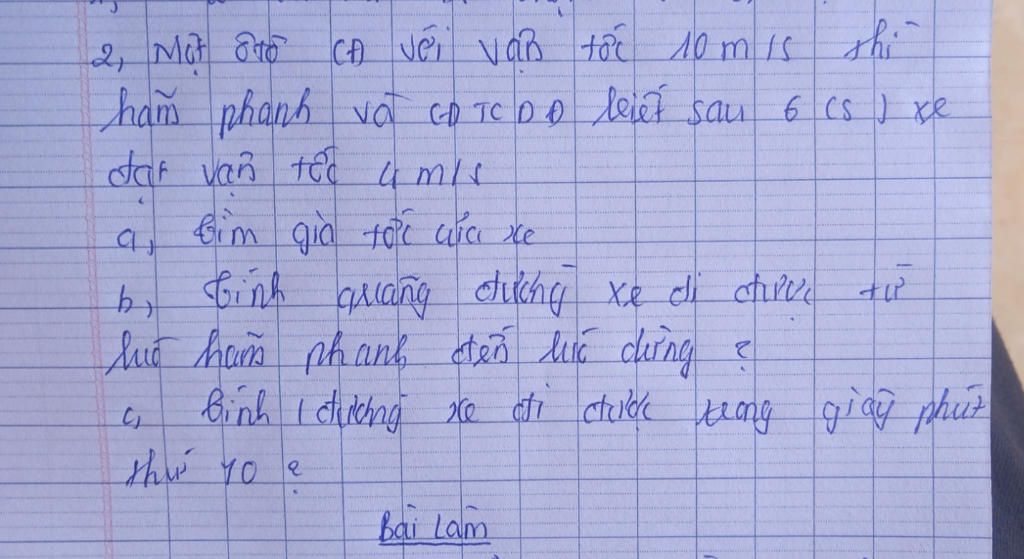 2, Một ôtô CĐ với vận tốc 10 m/s thì
hãm phanh và CĐTCDĐ biết sau 6 (s) xe
đạt vận tốc 4 m/s
a, tìm gia tốc của xe
b, tính quãng đường xe đi được từ
lúc hãm phanh đến lúc dừng ?
c, tính đường xe đi được trong giây phút
thứ 10 ?
Bài Làm